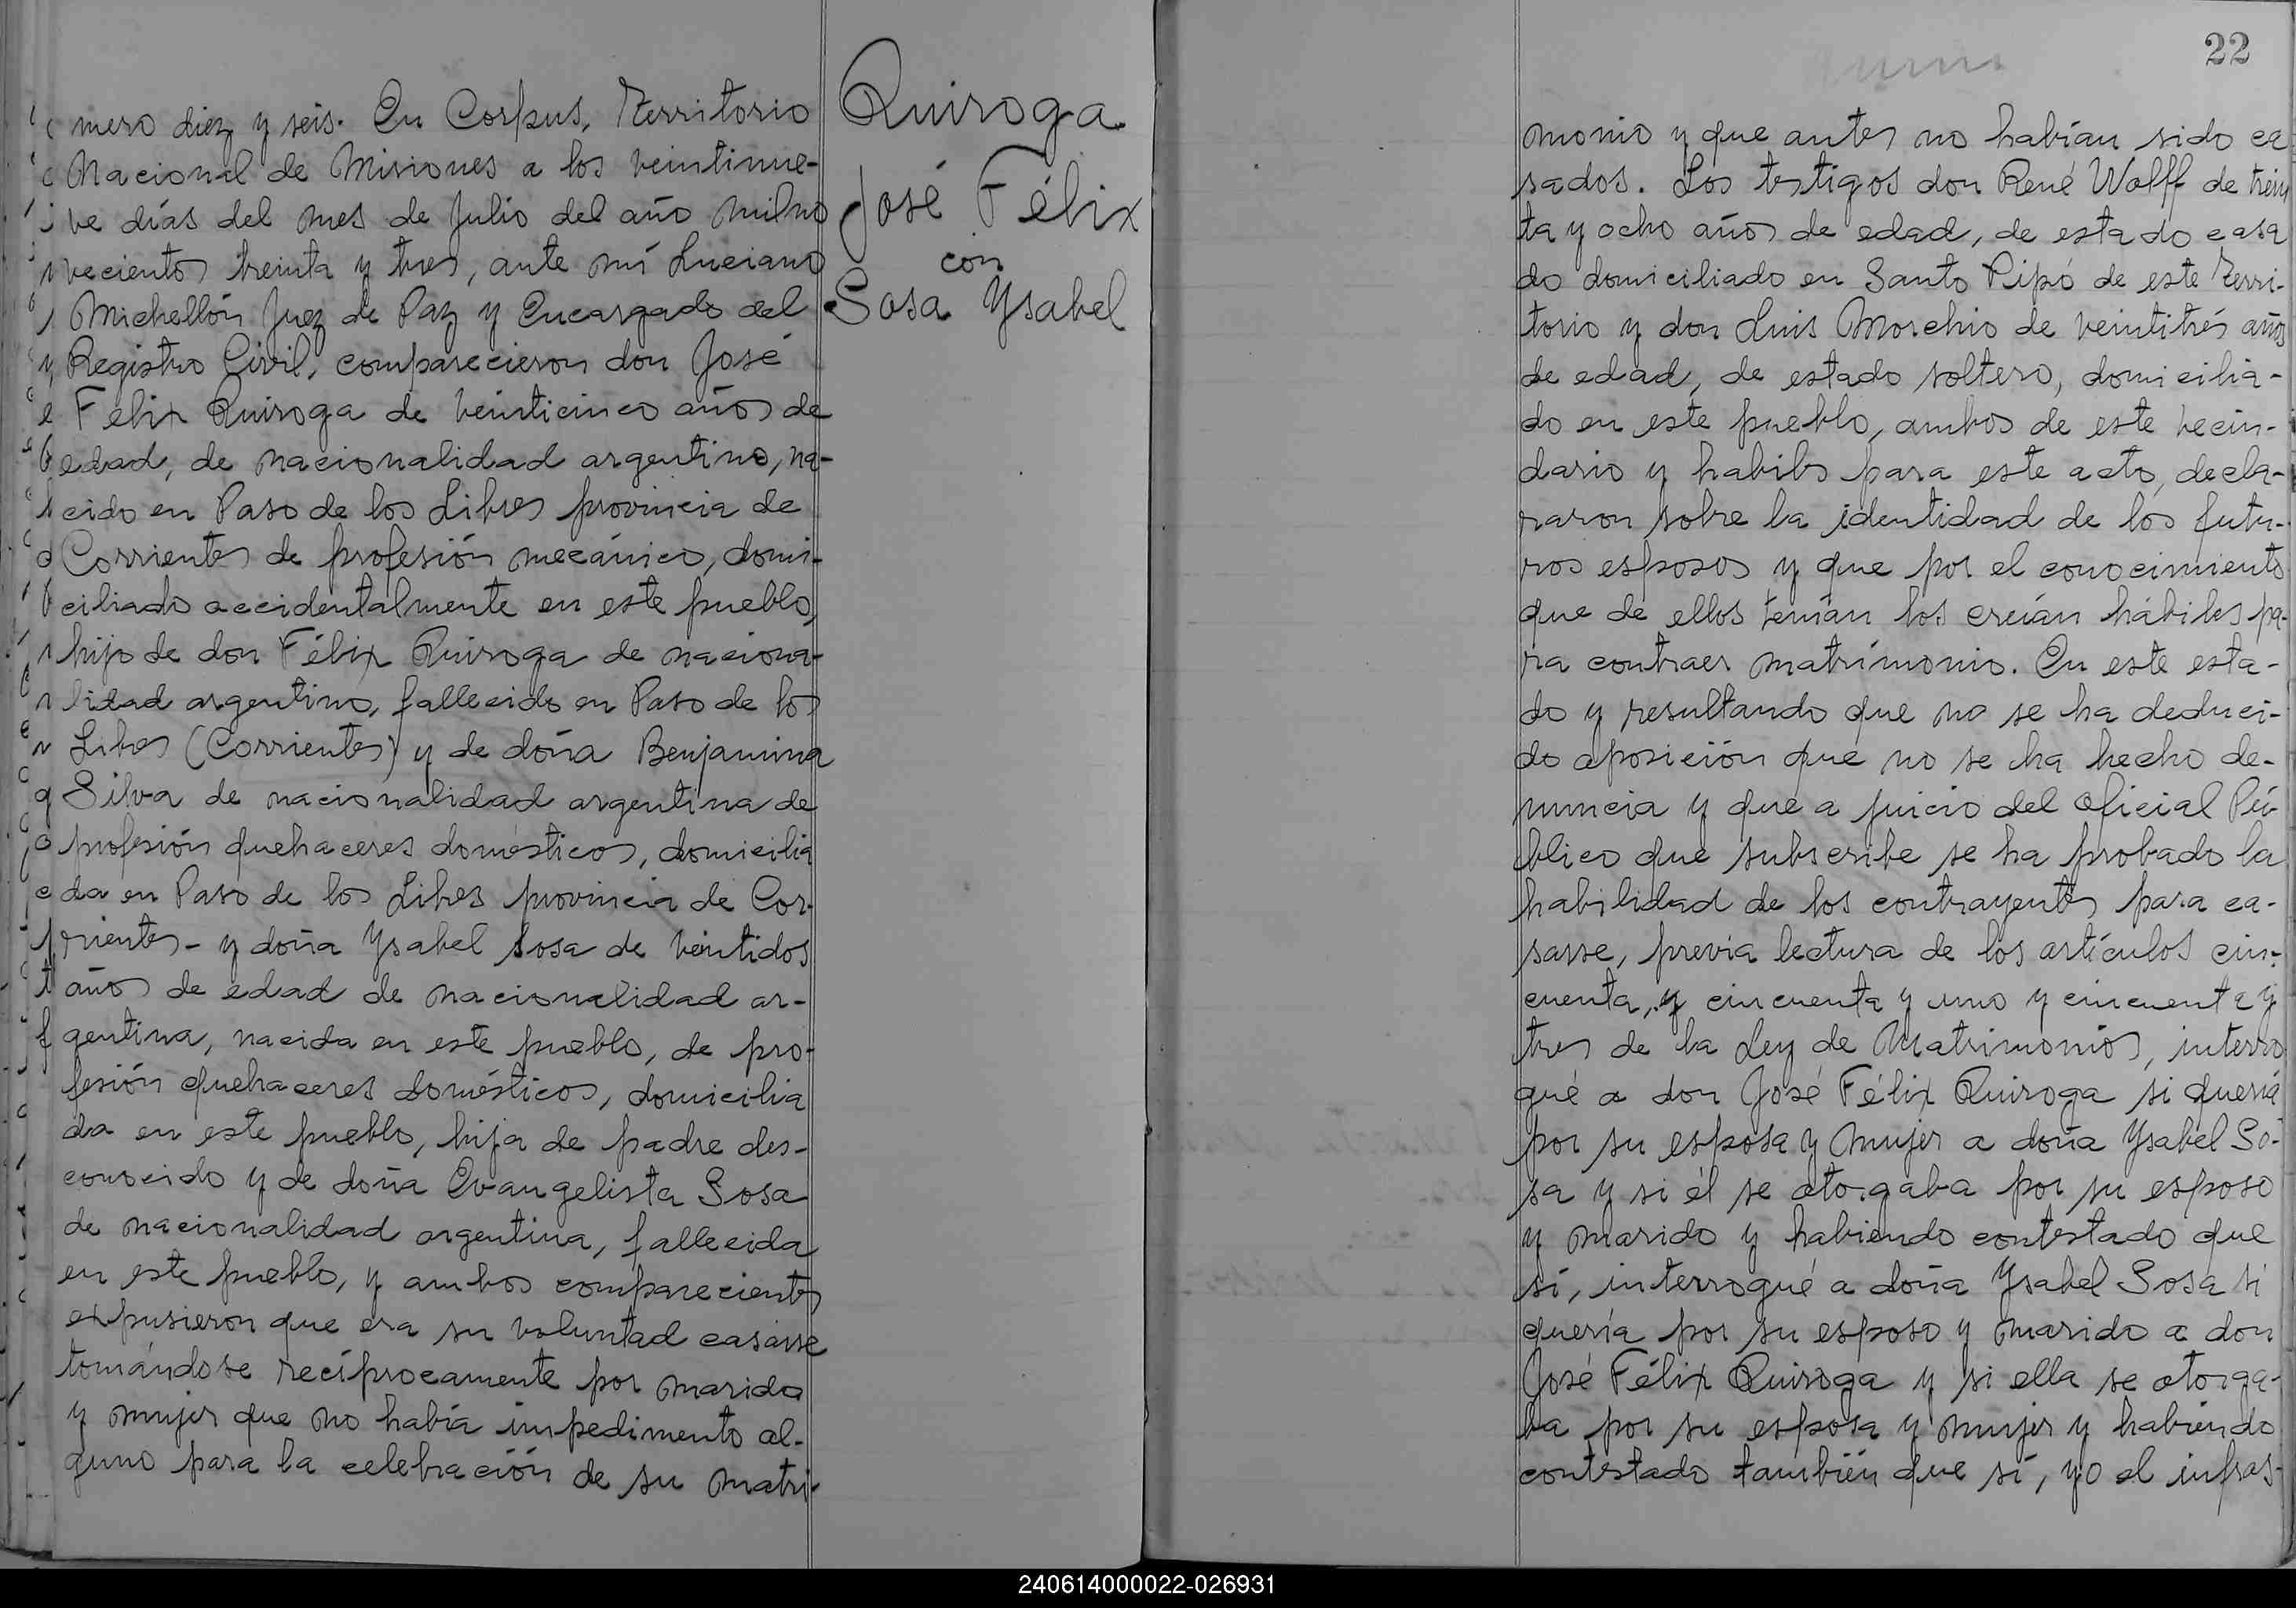 mero diez y seis. En Corpus, Territorio
Nacional de Misiones a los veintinue-
ve días del mes de Julio del año milno
vecientos treinta y tres, ante mí Luciano
Michellón Juez de Paz y Encargado del
Registro Civil, comparecieron don José
Félix Quiroga de veinticinco años de
edad, de nacionalidad argentino, na-
cido en Paso de los Libres provincia de
Corrientes de profesión mecánico, domi-
ciliado accidentalmente en este pueblo,
hijo de don Félix Quiroga de naciona-
lidad argentino, fallecido en Paso de los
Libres (Corrientes) y de doña Benjamina
Silva de nacionalidad argentina de
profesión quehaceres domésticos, domicilia
da en Paso de los Libres provincia de Cor-
rientes - y doña Ysabel Sosa de veintidos
años de edad de nacionalidad ar-
gentina, nacida en este pueblo, de pro-
fesión quehaceres domésticos, domicilia
da en este pueblo, hija de padre des-
conocido y de doña Evangelista Sosa
de nacionalidad argentina, fallecida
en este pueblo, y ambos comparecientes
expusieron que era su voluntad casarse
tomándose recíprocamente por marido
y mujer que no había impedimento al-
guno para la celebración de su matri-
Quiroga
José Félix
con
Sosa Ysabel
22
monio y que antes no habían sido ca
sados. Los testigos don René Wolff de trein
ta y ocho años de edad, de estado casa
do domiciliado en Santo Pipó de este Terri-
torio y don Luis Morchio de veintitrés años
de edad, de estado soltero, domicilia-
do en este pueblo, ambos de este vecin-
dario y habiles para este acto, decla-
raron sobre la identidad de los futu-
ros esposos y que por el conocimiento
que de ellos tenían los creían hábiles pa-
ra contraer matrimonio. En este esta-
do y resultando que no se ha deduci-
do oposición que no se ha hecho de-
nuncia y que a juicio del oficial Pú
blico que subscribe se ha probado la
habilidad de los contrayentes para ca-
sarse, previa lectura de los artículos cin-
cuenta, y cincuenta y uno y cincuenta y
tres de la Ley de Matrimonios, interro
gué a don José Félix Quiroga si quería
por su esposa y mujer a doña Ysabel So-
sa y si él se otorgaba por su esposo
y marido y habiendo contestado que
sí, interrogué a doña Ysabel Sosa si
quería por su esposo y marido a don
José Félix Quiroga y si ella se otorga-
ba por su esposa y mujer y habiendo
contestado también que sí, yo el infras-
240614000022-026931